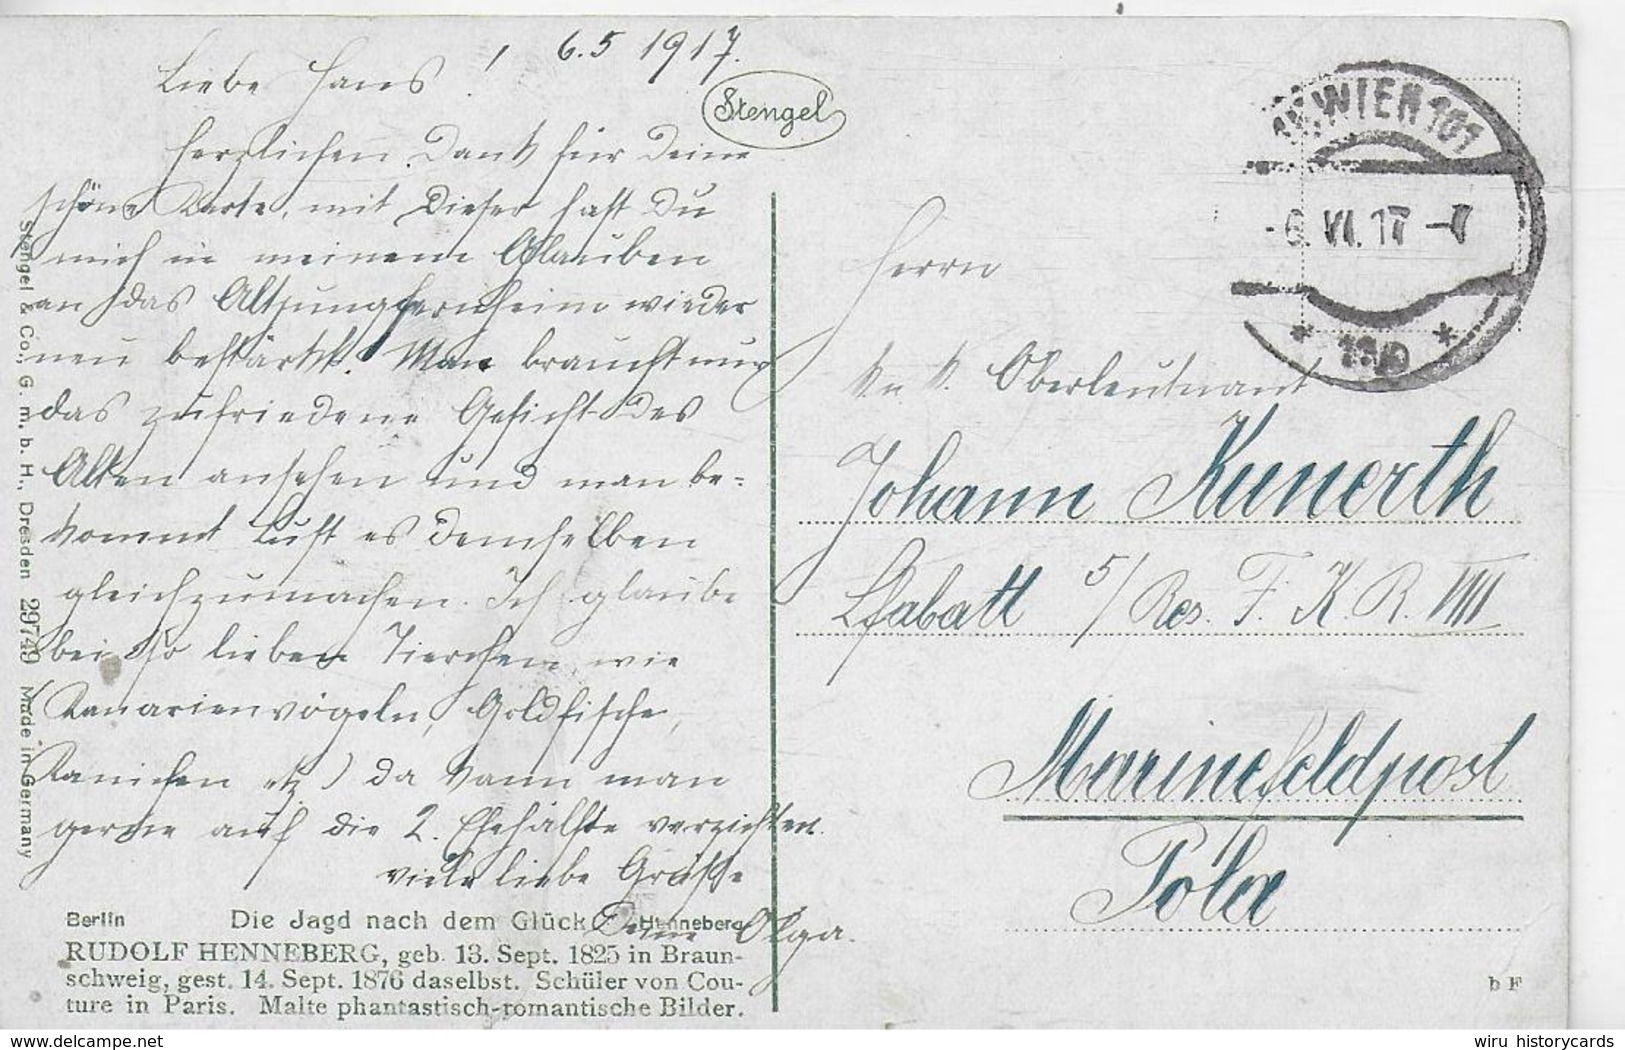 6.5 1917.
Liebe Hans!
Stengel
herzlichen Dank für Deine
schöne Karte, mit dieser hast Du
mich in meinem Glauben
an das Altjungfernheim wieder
neu bestärkt! Man braucht nur
das zufriedene Gesicht des
Alten ansehen und man be=
kommt Lust es demselben
gleichzumachen. Ich glaube
bei so lieben Tierchen, wie
(Kanarienvögeln, Goldfische,
Kaninchen etz) da kann man
gerne auf die 2. Ehehälfte verzichten.
viele liebe Grüsse
Deine Olga.
Berlin Die Jagd nach dem Glück Henneberg
RUDOLF HENNEBERG, geb. 13. Sept. 1825 in Braun-
schweig, gest. 14. Sept. 1876 daselbst. Schüler von Cou-
ture in Paris. Malte phantastisch-romantische Bilder.
Stengel & Co., G. m. b. H., Dresden 29749 Made in Germany
WIEN 101
VI. 17
Herrn
k u k. Oberleutnant
Johann Kunerth
5/Res. F. K. R.
Marinefeldpost
Pola
b F
wiru historycards